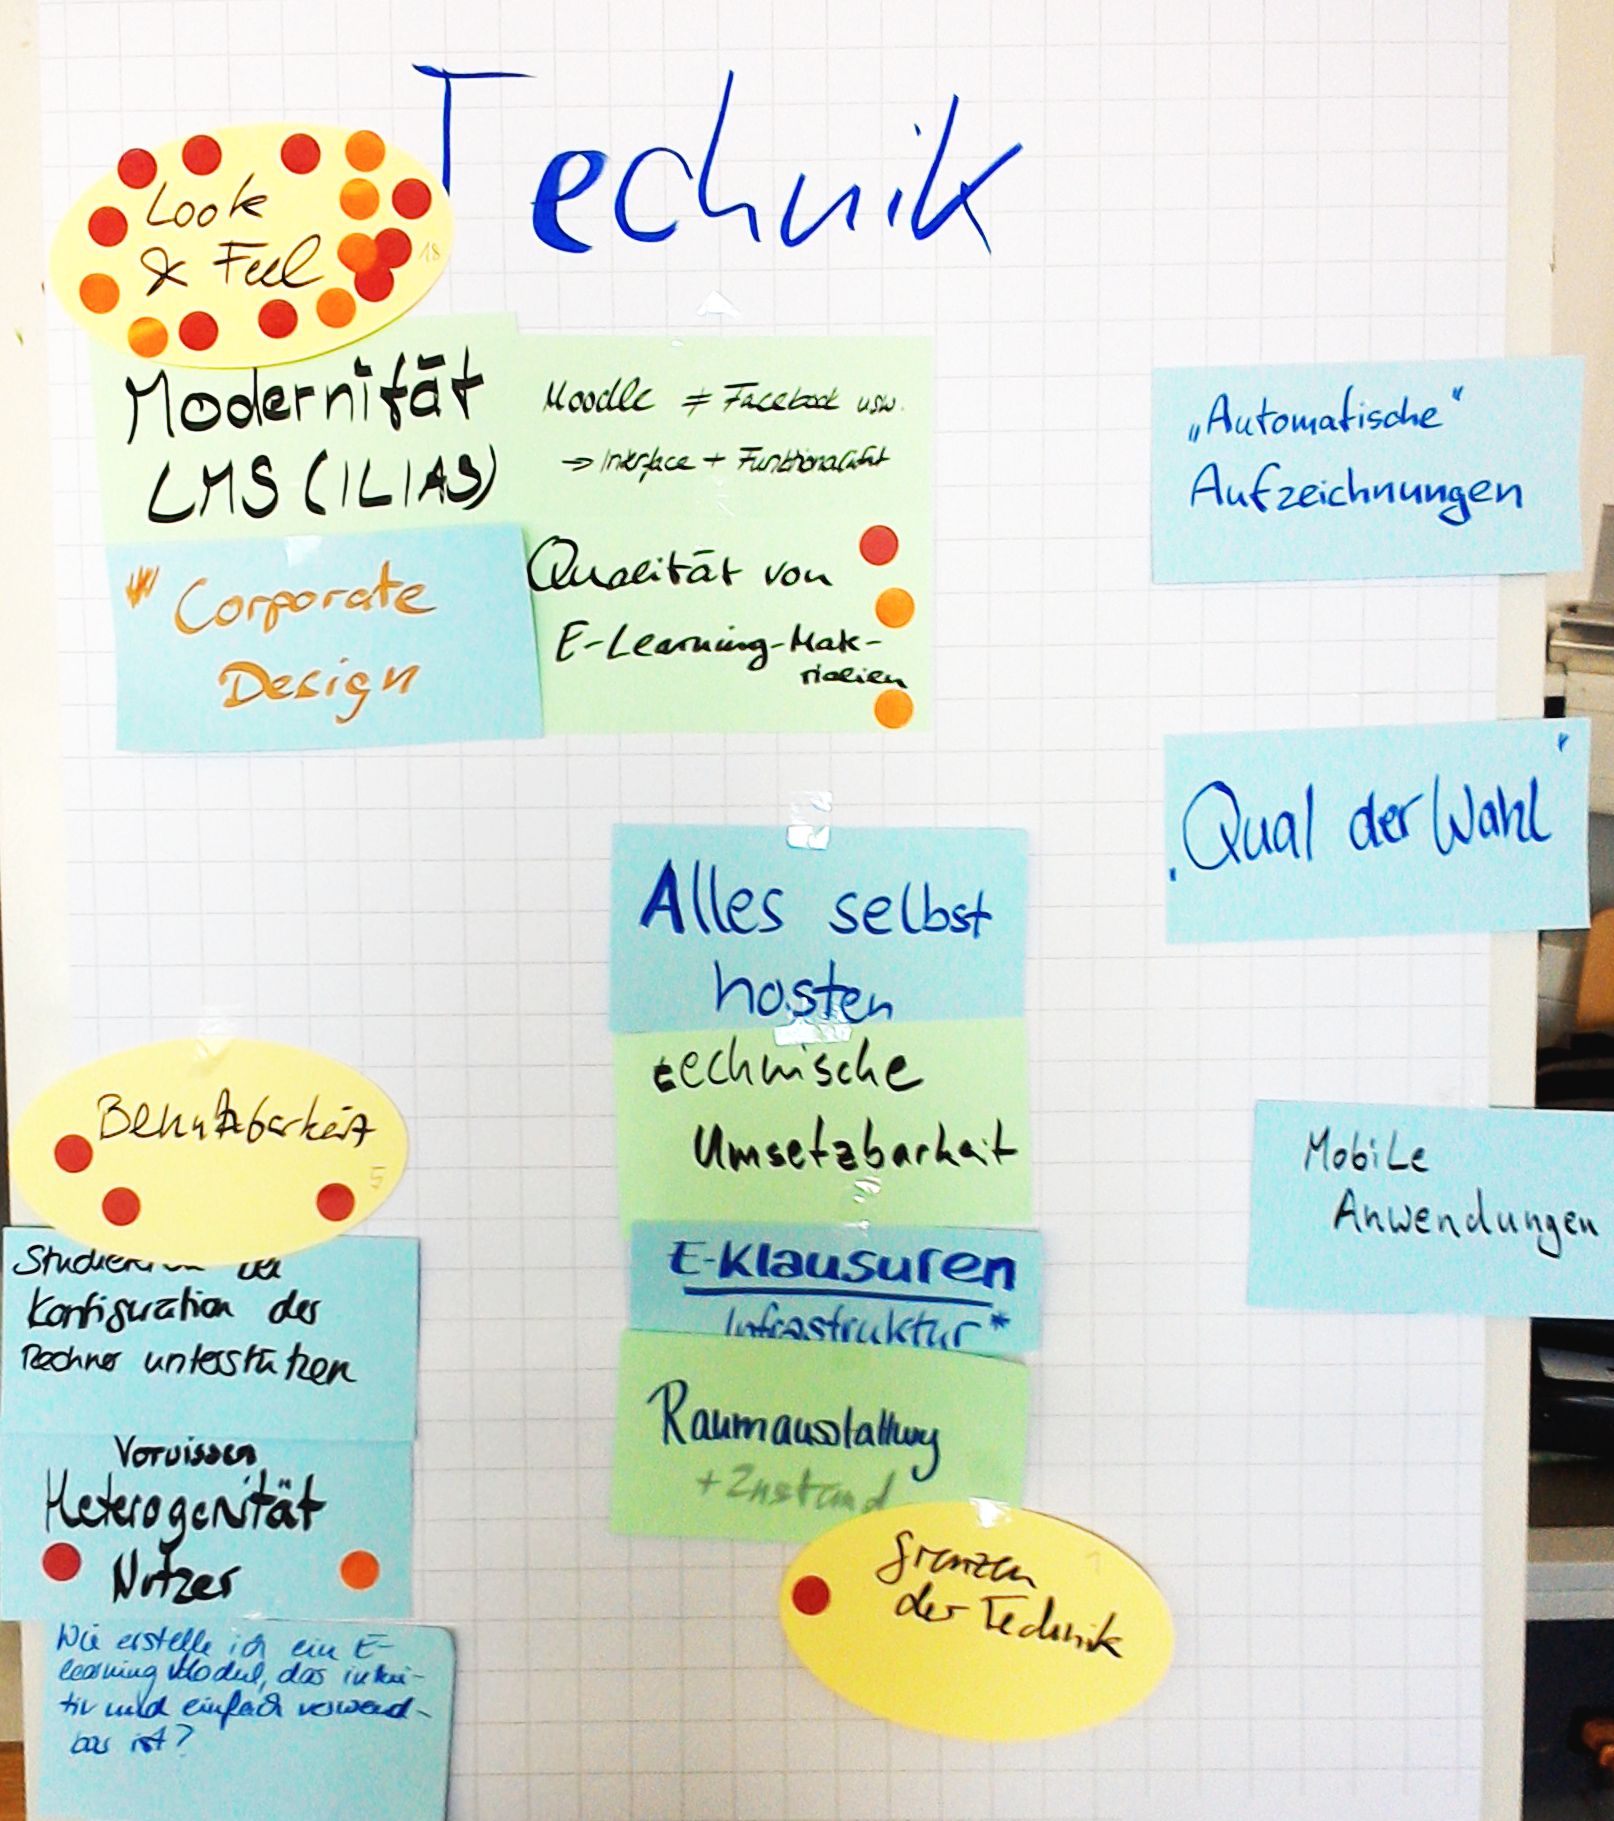 Technik
Look
& Feel
18
Modernität
LMS (ILIAS)
Corporate
Design
Moodle ≠ Facebook usw.
→ Interface + Funktionalität
Qualität von
E-Learning-Mate-
rialien
„Automatische“
Aufzeichnungen
„Qual der Wahl“
Alles selbst
hosten
technische
Umsetzbarkeit
E-Klausuren
Infrastruktur*
Raumausstattung
+ Zustand
Grenzen
der Technik
1
Mobile
Anwendungen
Benutzbarkeit
5
Studierenden bei
Konfiguration der
Rechner unterstützen
Vorwissen
Heterogenität
Nutzer
Wie erstelle ich ein E-
learning Modul, das intui-
tiv und einfach verwend-
bar ist?